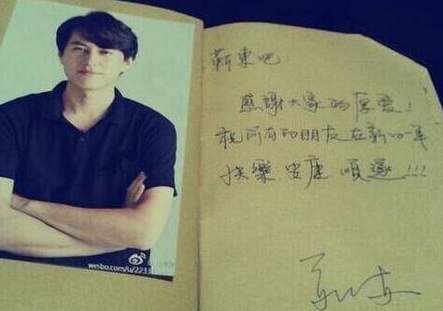 靳東吧
感謝大家的厚愛!
祝所有的朋友在新的一年
快樂 安康 順遂!!!
靳东
weibo.com/u/223